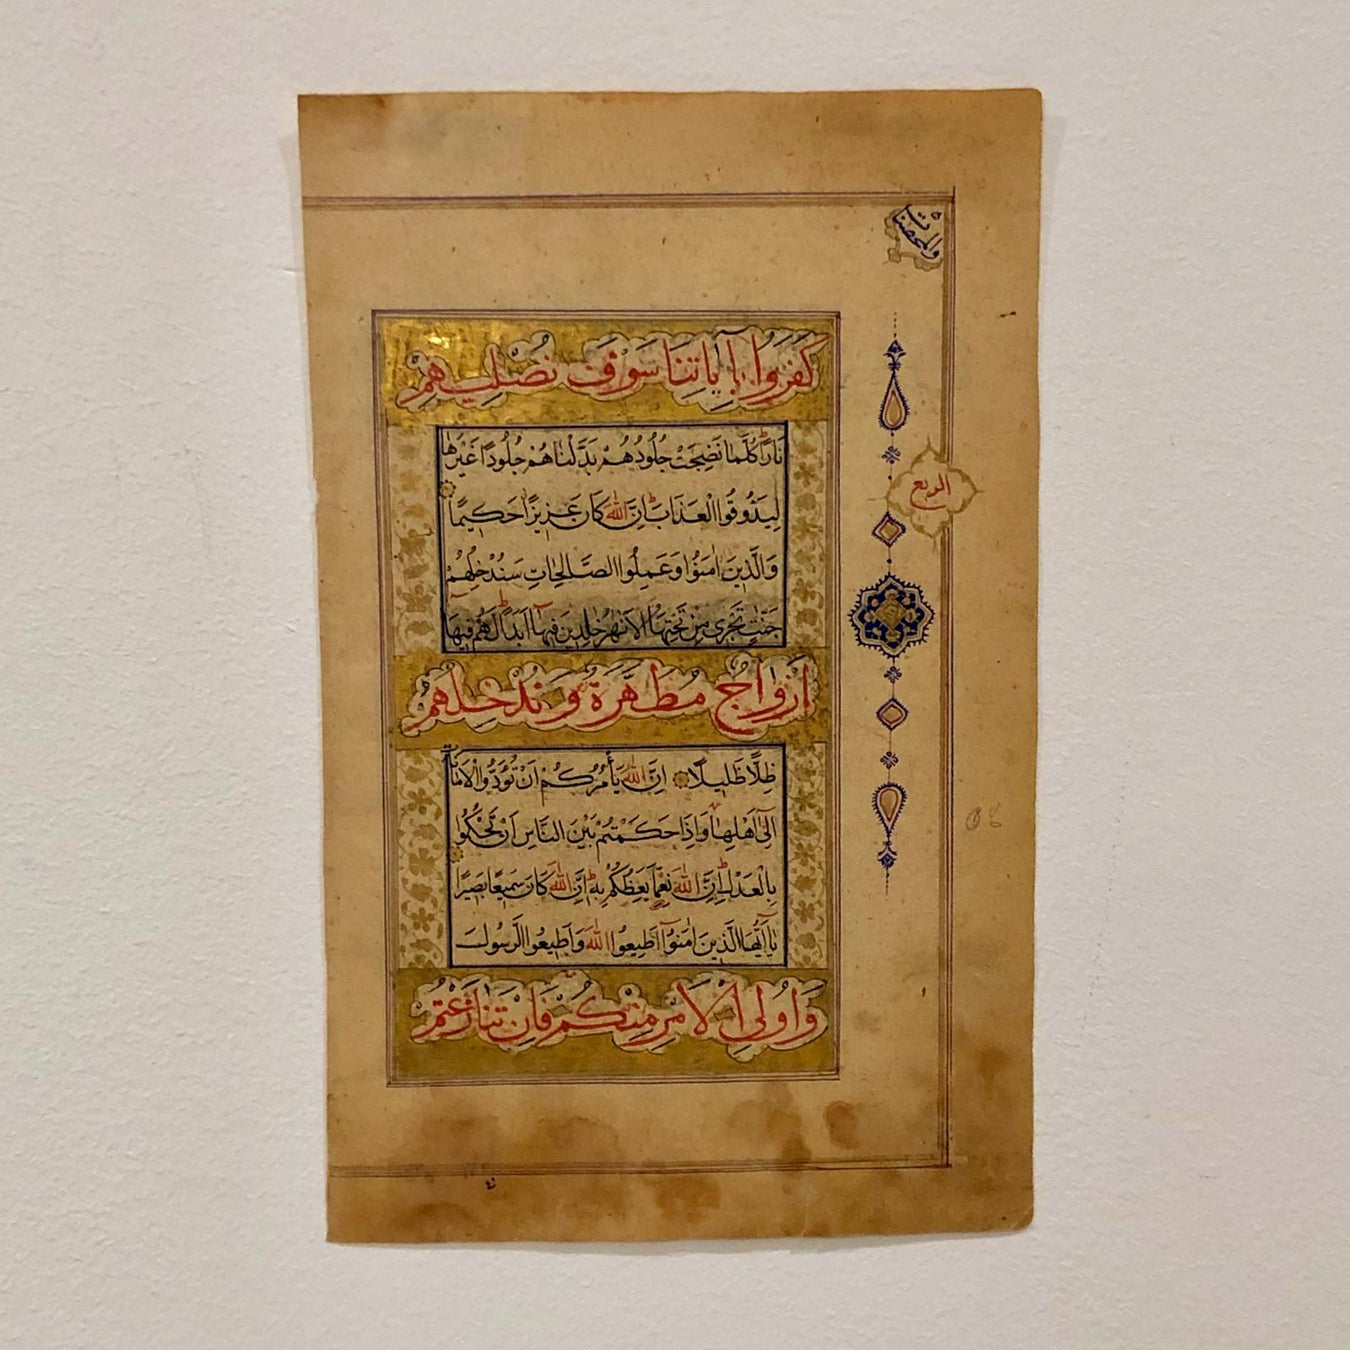 والمحصنات
كَفَرُوا بِآيَاتِنَا سَوْفَ نُصْلِيهِمْ
نَارًا كُلَّمَا نَضِجَتْ جُلُودُهُمْ بَدَّلْنَاهُمْ جُلُودًا غَيْرَهَا
الربع
لِيَذُوقُوا الْعَذَابَ إِنَّ اللَّهَ كَانَ عَزِيزًا حَكِيمًا
وَالَّذِينَ اٰمَنُوا وَعَمِلُوا الصَّالِحَاتِ سَنُدْخِلُهُمْ
جَنَّٰتٍ تَجْرِي مِنْ تَحْتِهَا الْاَنْهٰرُ خٰلِدِينَ فِيهَآ اَبَدًا لَهُمْ فِيهَآ
اَزْوَاجٌ مُطَهَّرَةٌ وَنُدْخِلُهُمْ
ظِلًّا ظَلِيلًا اِنَّ اللّٰهَ يَأْمُرُكُمْ اَنْ تُؤَدُّوا الْاَمَانَاتِ
اِلٰٓى اَهْلِهَا وَاِذَا حَكَمْتُمْ بَيْنَ النَّاسِ اَنْ تَحْكُمُوا
بِالْعَدْلِ اِنَّ اللّٰهَ نِعِمَّا يَعِظُكُمْ بِهٖ اِنَّ اللّٰهَ كَانَ سَمِيعًا بَصِيرًا
يَآ اَيُّهَا الَّذِينَ اٰمَنُوٓا اَطِيعُوا اللّٰهَ وَاَطِيعُوا الرَّسُولَ
وَاُولِي الْاَمْرِ مِنْكُمْ فَاِنْ تَنَازَعْتُمْ